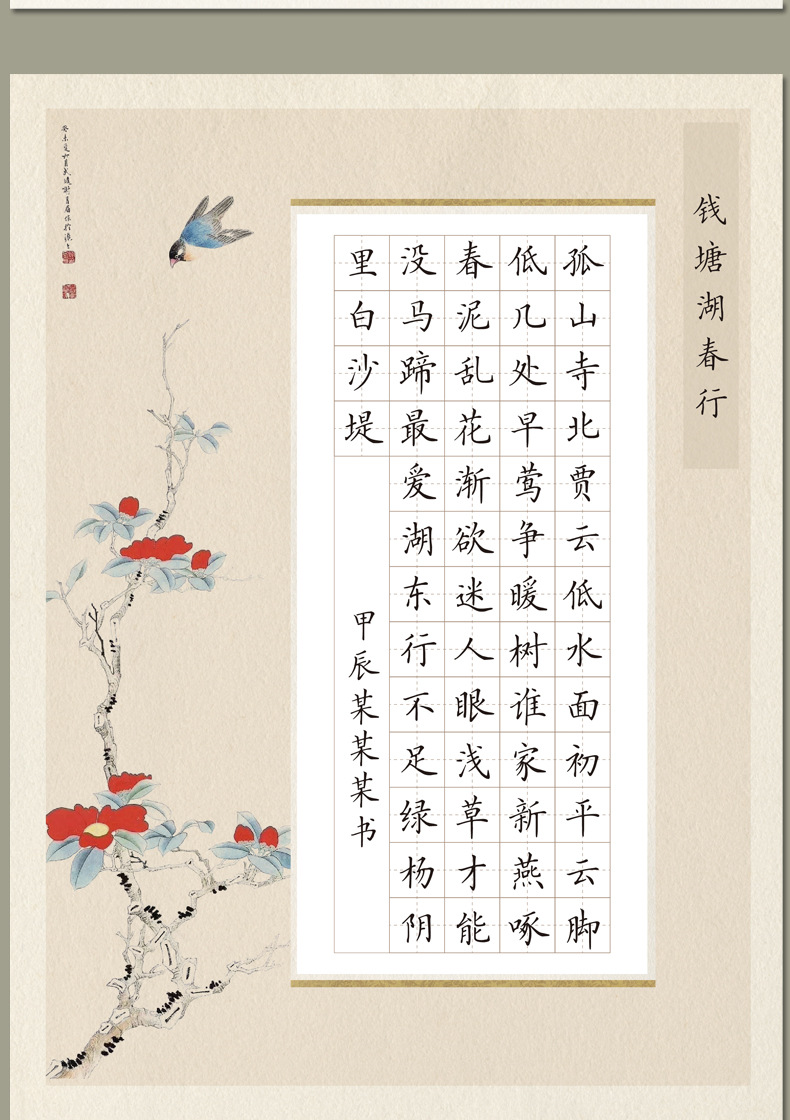 钱塘湖春行
孤山寺北贾云低水面初平云脚
低几处早莺争暖树谁家新燕啄
春泥乱花渐欲迷人眼浅草才能
没马蹄最爱湖东行不足绿杨阴
里白沙堤
甲辰某某某书